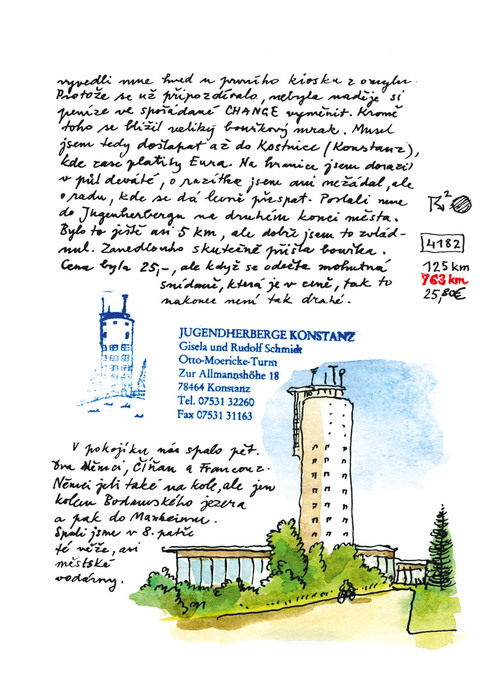 vyvedli mne hned u prvního kiosku z omylu.
Protože se už připozdívalo, nebyla naděje si
peníze ve spořádané CHANGE vyměnit. Kromě
toho se blížil veliký bouřkový mrak. Musel
jsem tedy došlapat až do Kostnice (Konstanz),
kde zase platily Eura. Na hranice jsem dorazil
v půl deváté, o razítka jsem ani nežádal, ale
o radu, kde se dá levně přespat. Poslali mne
do Jugenherbergu na druhém konci města.
Bylo to ještě asi 5 km, ale dobře jsem to zvlád-
nul. Zanedlouho skutečně přišla bouřka.
Cena byla 25,-, ale když se odečte mohutná
snídaně, která je v ceně, tak to
nakonec není tak drahé.
4182
125 km
763 km
25,80€
JUGENDHERBERGE KONSTANZ
Gisela und Rudolf Schmidt
Otto-Moericke-Turm
Zur Allmannshöhe 18
78464 Konstanz
Tel. 07531 32260
Fax 07531 31163
V pokojíku nás spalo pět.
Dva Němci, Číňan a Francouz.
Němci jeli také na kole, ale jen
kolem Bodamského jezera
a pak do Manheimu.
Spali jsme v 8. patře
té věže, asi
městské
vodárny.